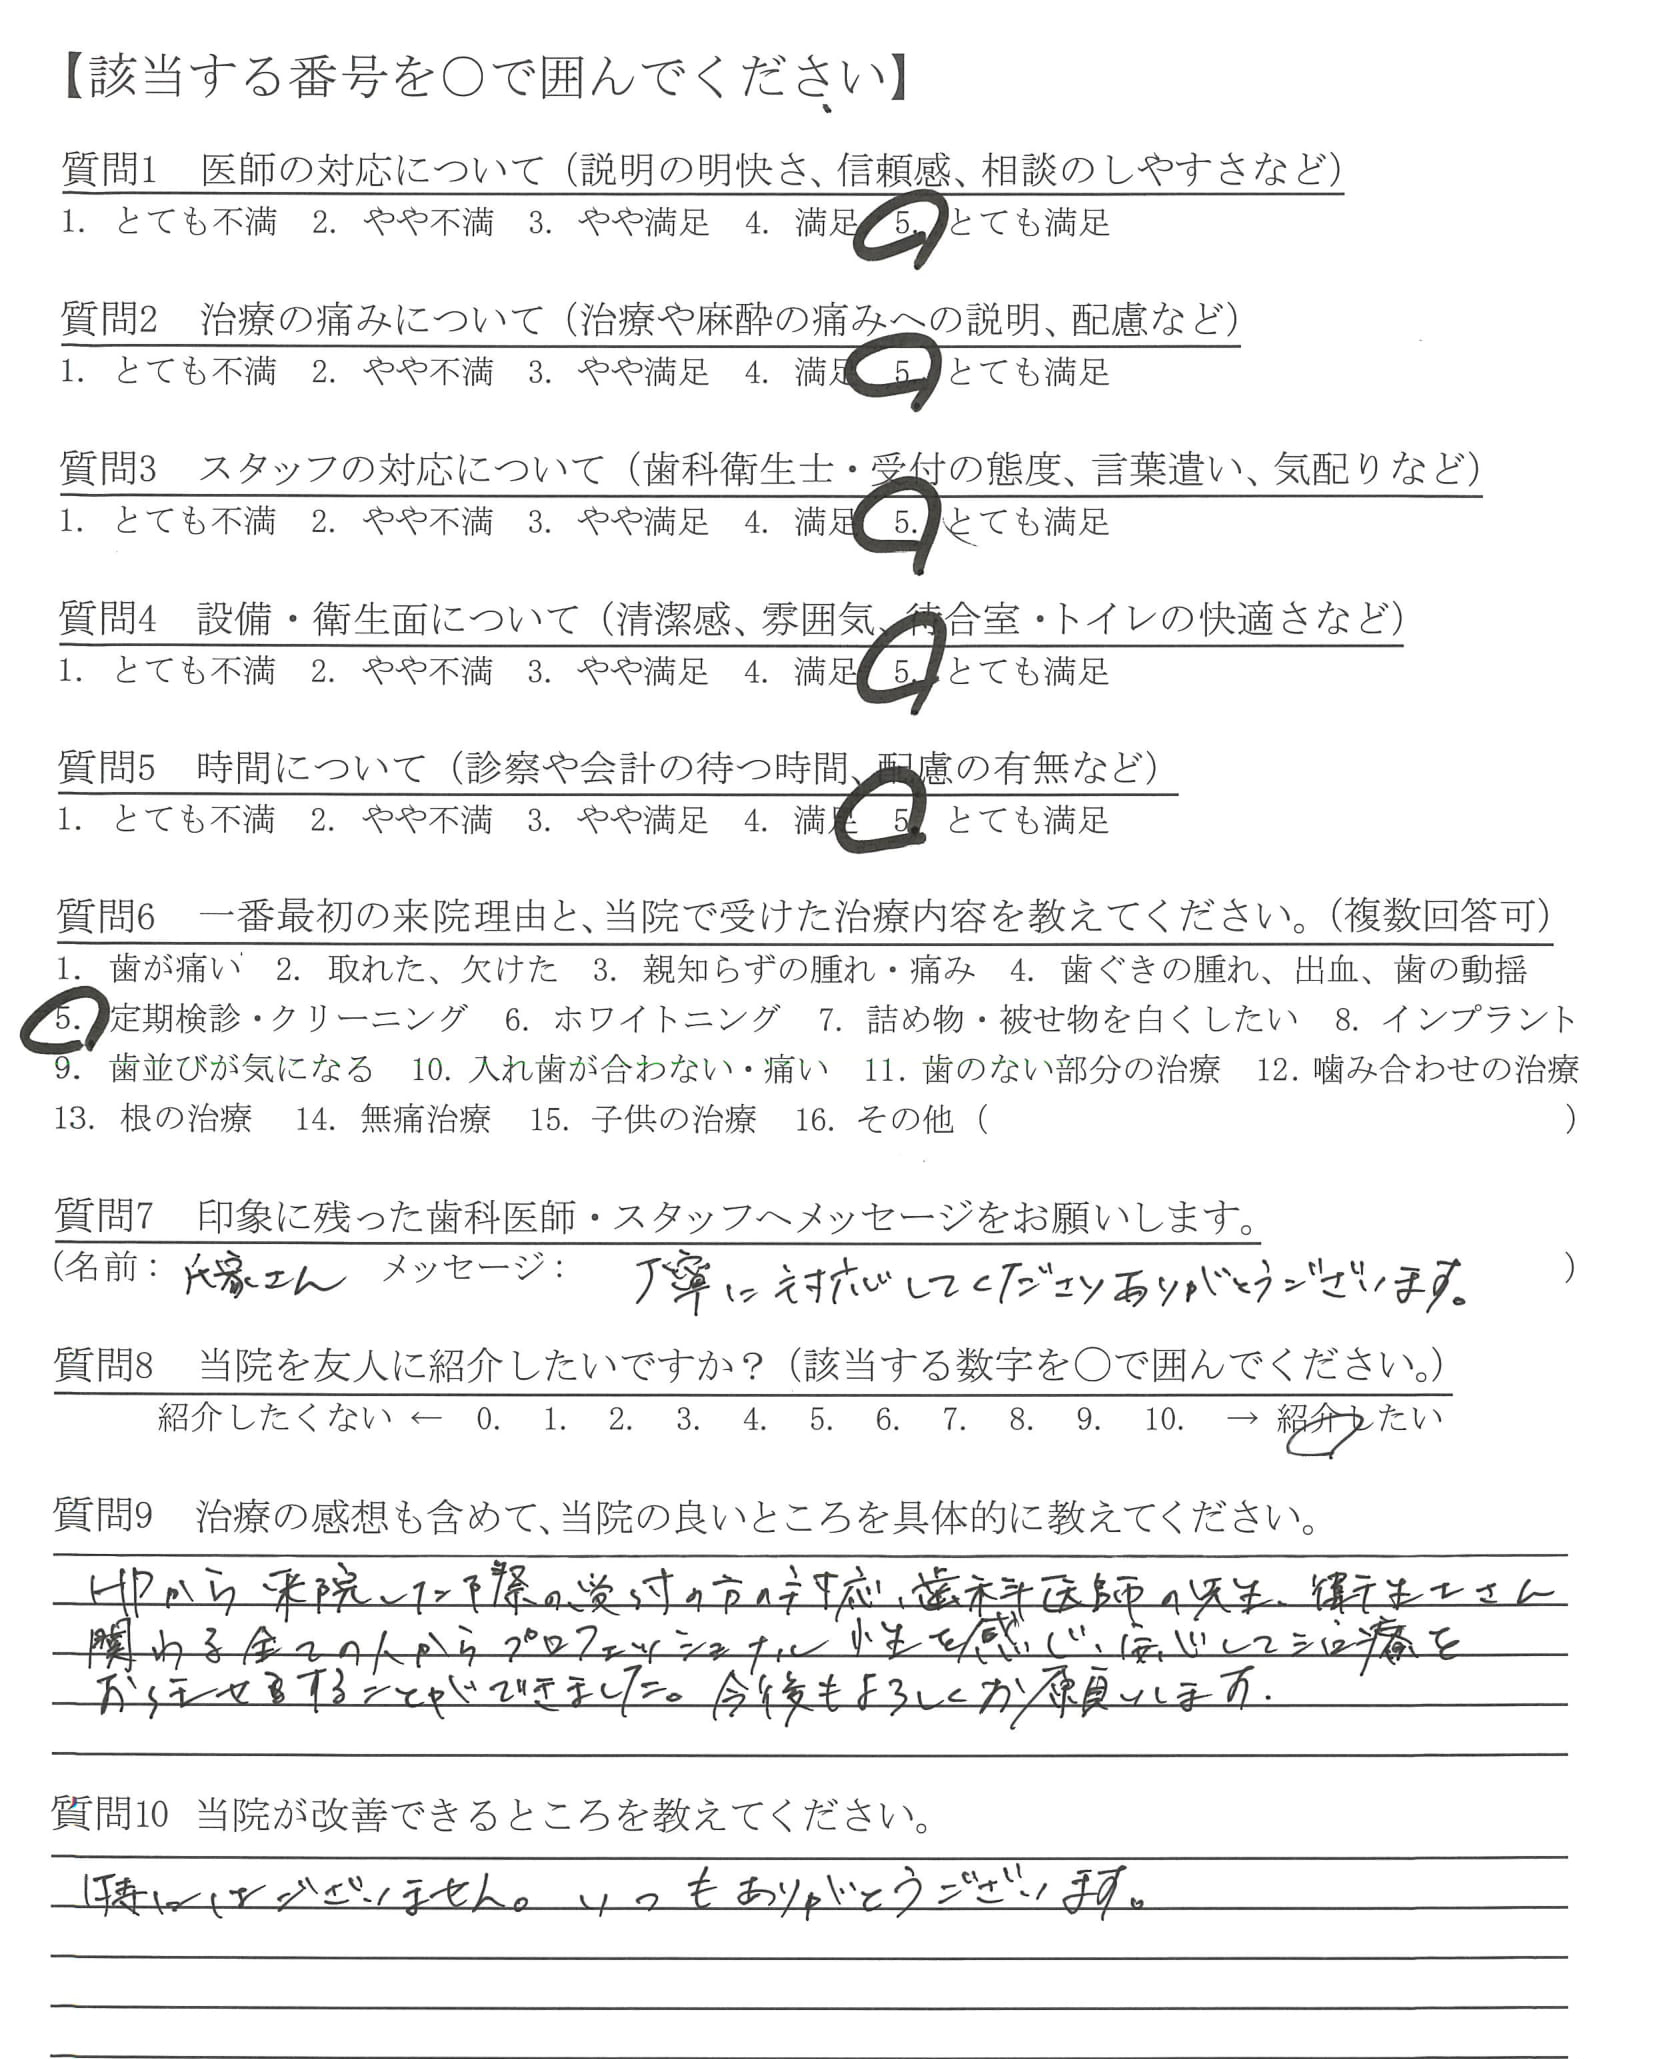 【該当する番号を○で囲んでください】
質問1　医師の対応について（説明の明快さ、信頼感、相談のしやすさなど）
1. とても不満　2. やや不満　3. やや満足　4. 満足　5. とても満足
質問2　治療の痛みについて（治療や麻酔の痛みへの説明、配慮など）
1. とても不満　2. やや不満　3. やや満足　4. 満足　5. とても満足
質問3　スタッフの対応について（歯科衛生士・受付の態度、言葉遣い、気配りなど）
1. とても不満　2. やや不満　3. やや満足　4. 満足　5. とても満足
質問4　設備・衛生面について（清潔感、雰囲気、待合室・トイレの快適さなど）
1. とても不満　2. やや不満　3. やや満足　4. 満足　5. とても満足
質問5　時間について（診察や会計の待つ時間、配慮の有無など）
1. とても不満　2. やや不満　3. やや満足　4. 満足　5. とても満足
質問6　一番最初の来院理由と、当院で受けた治療内容を教えてください。（複数回答可）
1. 歯が痛い　2. 取れた、欠けた　3. 親知らずの腫れ・痛み　4. 歯ぐきの腫れ、出血、歯の動揺
5. 定期検診・クリーニング　6. ホワイトニング　7. 詰め物・被せ物を白くしたい　8. インプラント
9. 歯並びが気になる　10. 入れ歯が合わない・痛い　11. 歯のない部分の治療　12. 噛み合わせの治療
13. 根の治療　14. 無痛治療　15. 子供の治療　16. その他（　）
質問7　印象に残った歯科医師・スタッフへメッセージをお願いします。
（名前： 氏家さん　メッセージ：　丁寧に対応してくださりありがとうございます。）
質問8　当院を友人に紹介したいですか？（該当する数字を○で囲んでください。）
紹介したくない ← 0. 1. 2. 3. 4. 5. 6. 7. 8. 9. 10. → 紹介したい
質問9　治療の感想も含めて、当院の良いところを具体的に教えてください。
HPから来院した際の受付の方の対応、歯科医師の先生、衛生士さん
関わる全ての人からプロフェッショナル性を感じ、安心して治療を
お任せすることができました。今後もよろしくお願いします.
質問10　当院が改善できるところを教えてください。
特にはございません。いつもありがとうございます。